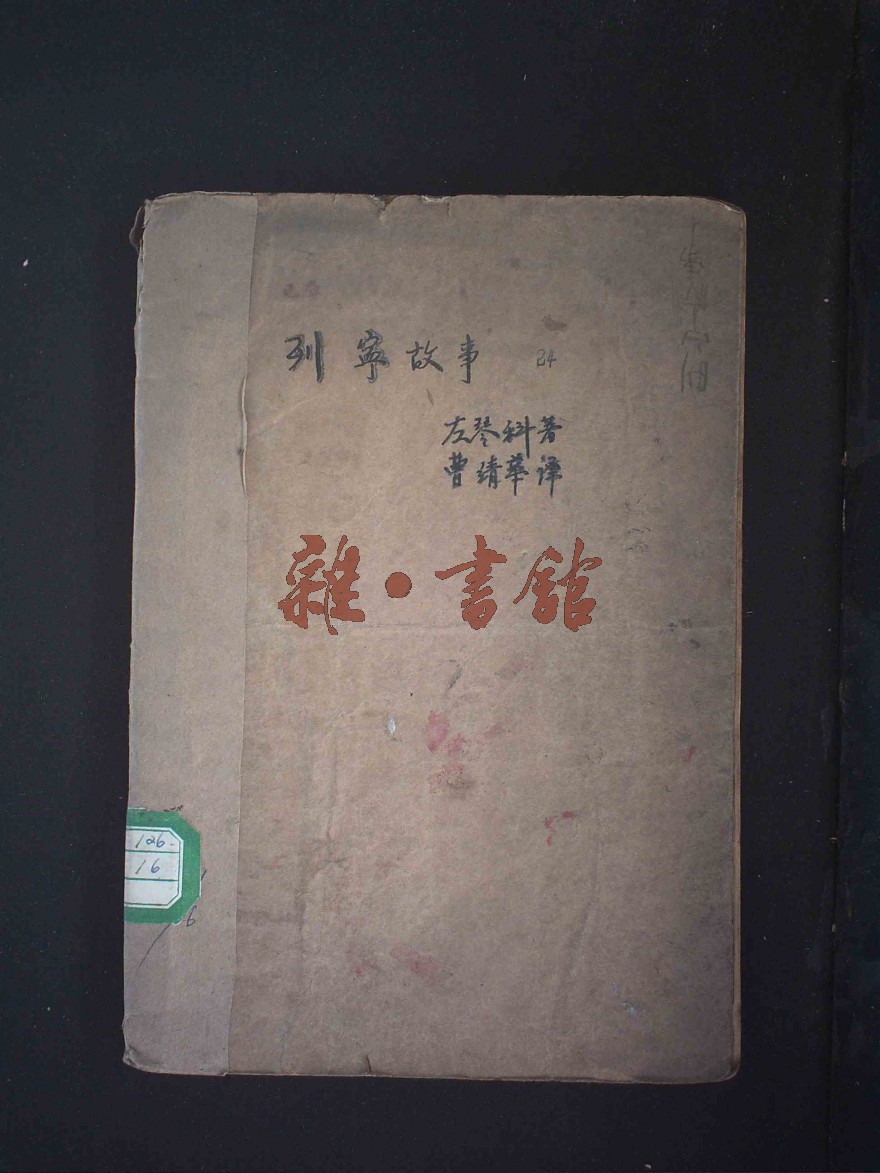 列寧故事 24
左琴科著
曹靖華譯
雜·書館
126.
16
6